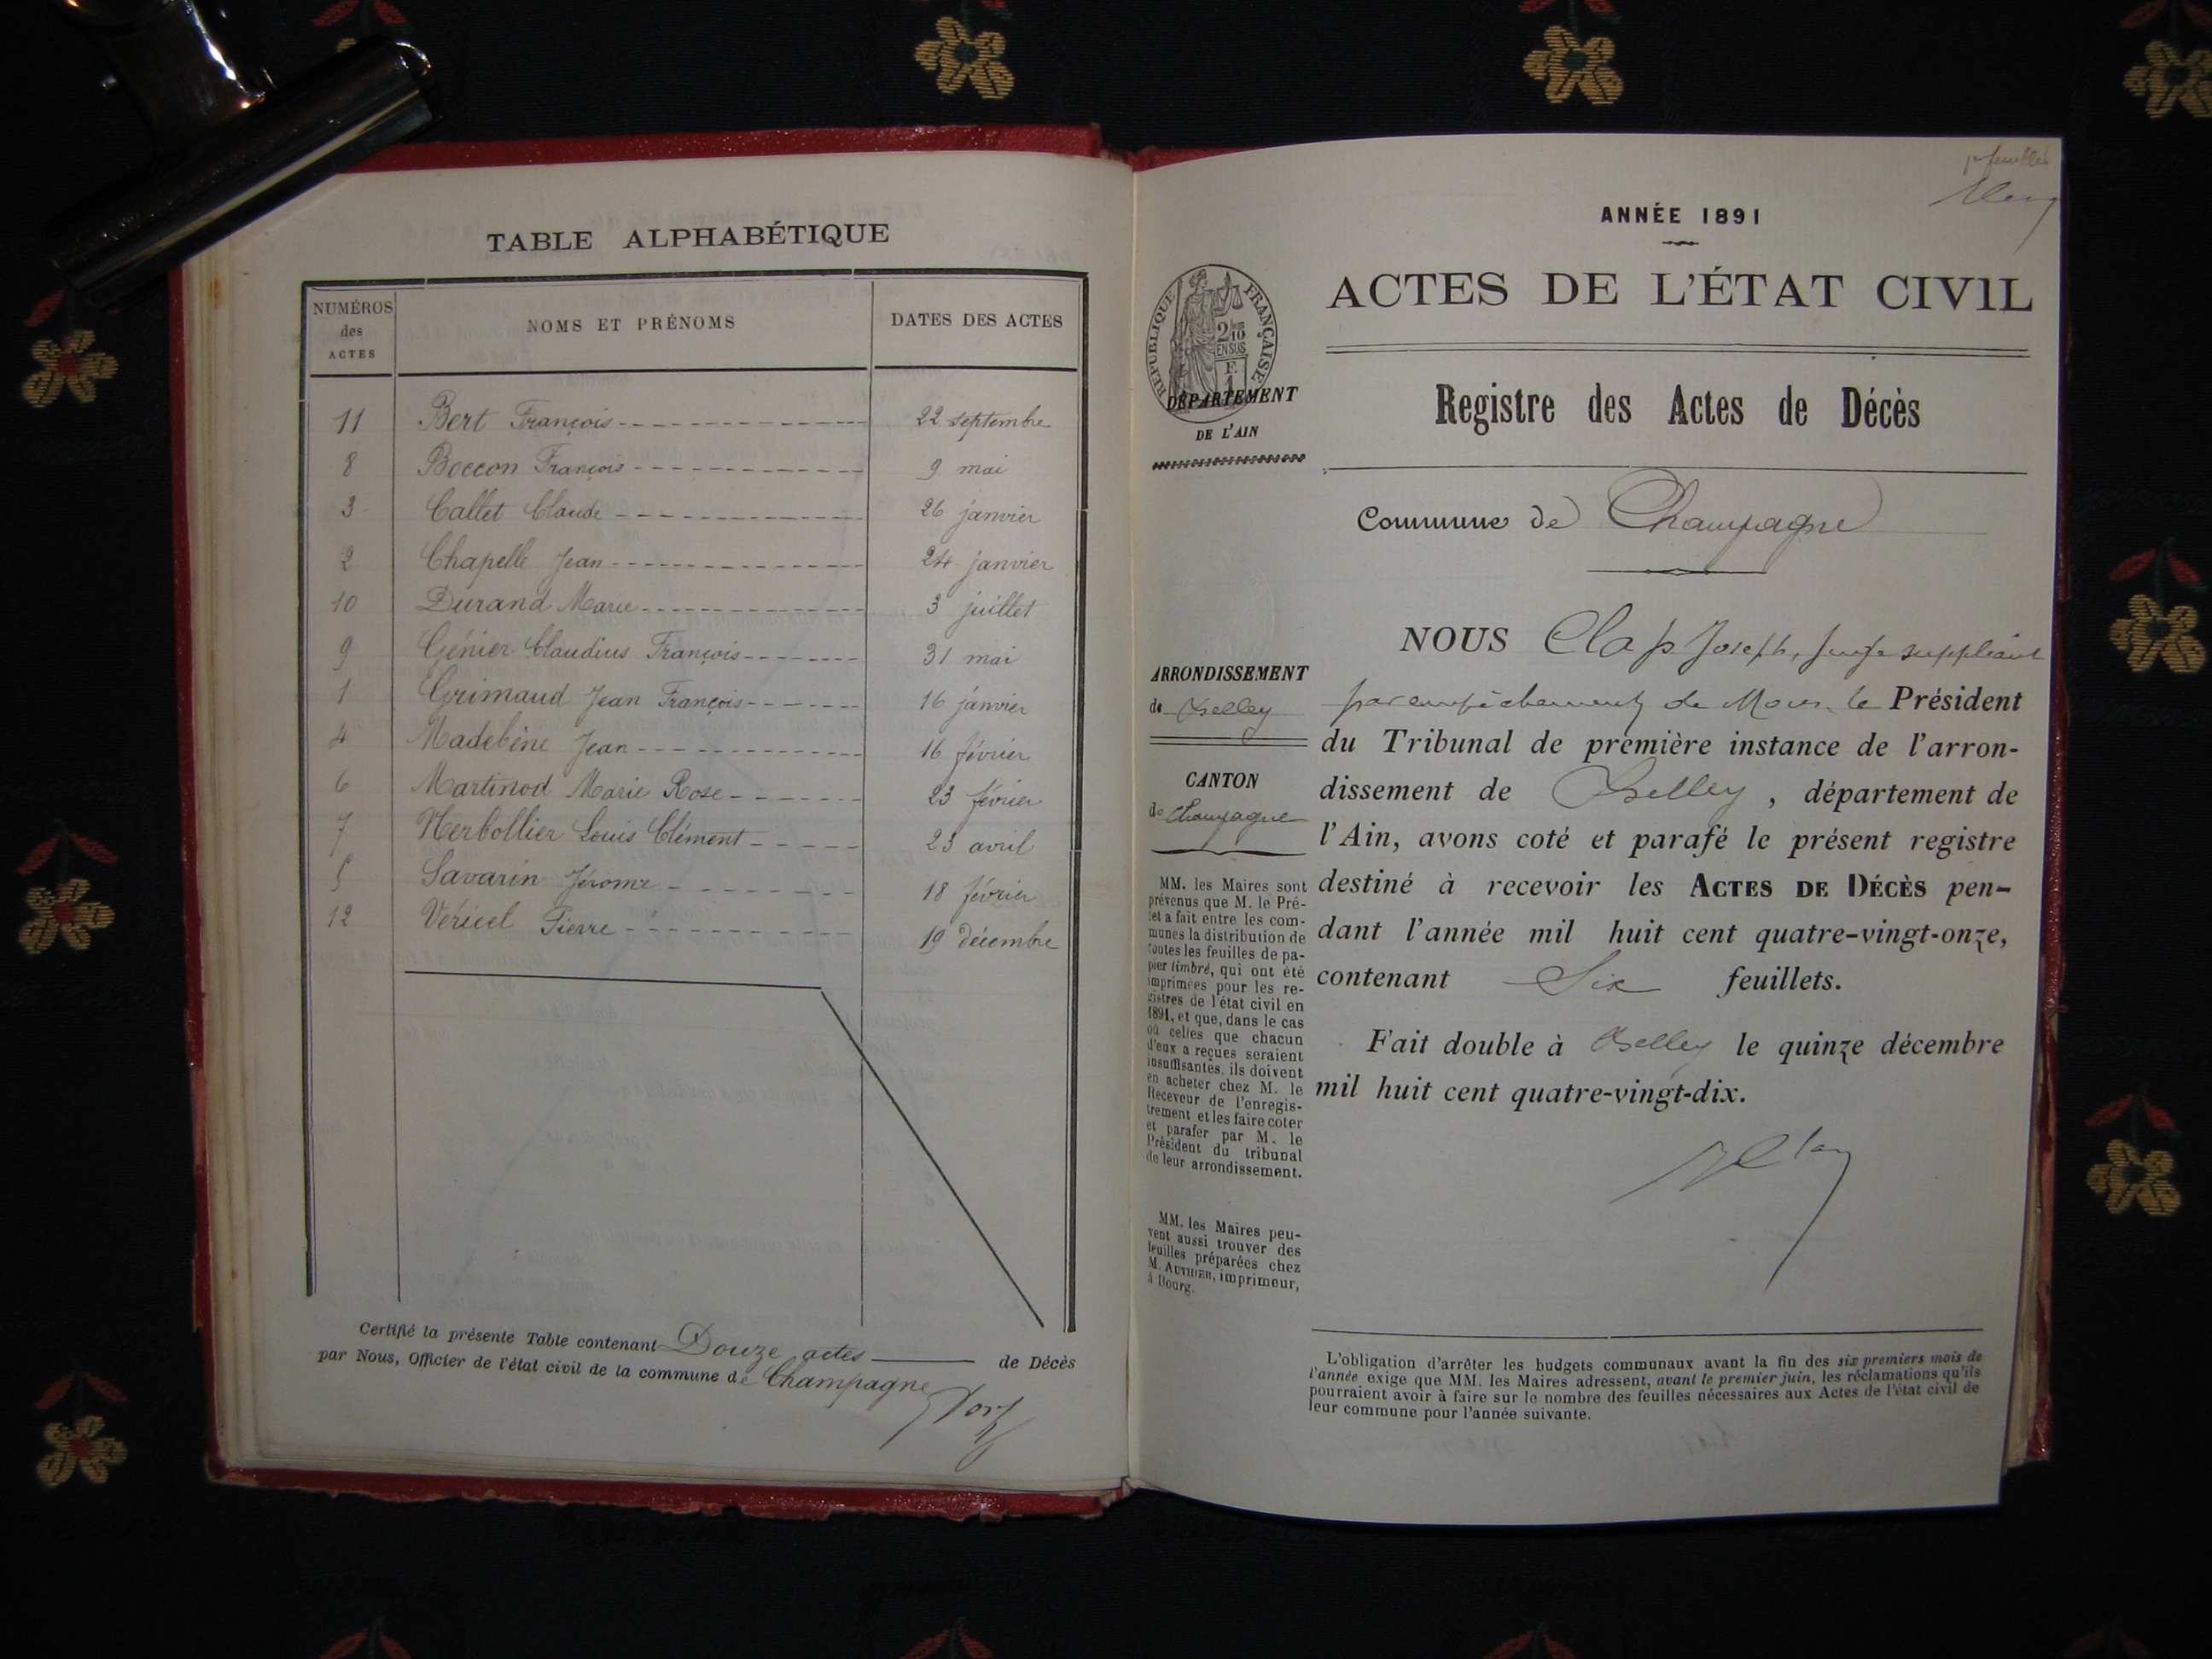 TABLE ALPHABÉTIQUE
NUMÉROS des ACTES
NOMS ET PRÉNOMS
DATES DES ACTES
11 Bert François 22 septembre
8 Boccon François 9 mai
3 Callet Claude 26 janvier
2 Chapelle Jean 24 janvier
10 Durand Marie 3 juillet
9 Génier Claudius François 31 mai
1 Grimaud Jean François 16 janvier
4 Madebène Jean 16 février
6 Martinod Marie Rose 23 février
7 Nerbollier Louis Clément 23 avril
5 Savarin Jérome 18 février
12 Véricel Pierre 19 décembre
Certifié la présente Table contenant Douze actes de Décès
par Nous, Officier de l'état civil de la commune de Champagne
1er feuillet
ANNÉE 1891
ACTES DE L'ÉTAT CIVIL
RÉPUBLIQUE FRANÇAISE
2/10
EN SUS
F.
1
DÉPARTEMENT
DE L'AIN
Registre des Actes de Décès
Commune de Champagne
ARRONDISSEMENT
de Belley
CANTON
de Champagne
MM. les Maires sont
prévenus que M. le Pré-
fet a fait entre les com-
munes la distribution de
toutes les feuilles de pa-
pier timbré, qui ont été
imprimées pour les re-
gistres de l'état civil en
1891, et que, dans le cas
où celles que chacun
d'eux a reçues seraient
insuffisantes, ils doivent
en acheter chez M. le
Receveur de l'enregis-
trement et les faire coter
et parafer par M. le
Président du tribunal
de leur arrondissement.
MM. les Maires peu-
vent aussi trouver des
feuilles préparées chez
M. AUTHIER, imprimeur,
à Bourg.
NOUS Clap Joseph, juge suppléant
par empêchement de Mons. le Président
du Tribunal de première instance de l'arron-
dissement de Belley, département de
l'Ain, avons coté et parafé le présent registre
destiné à recevoir les ACTES DE DÉCÈS pen-
dant l'année mil huit cent quatre-vingt-onze,
contenant Six feuillets.
Fait double à Belley le quinze décembre
mil huit cent quatre-vingt-dix.
L'obligation d'arrêter les budgets communaux avant la fin des six premiers mois de
l'année exige que MM. les Maires adressent, avant le premier juin, les réclamations qu'ils
pourraient avoir à faire sur le nombre des feuilles nécessaires aux Actes de l'état civil de
leur commune pour l'année suivante.